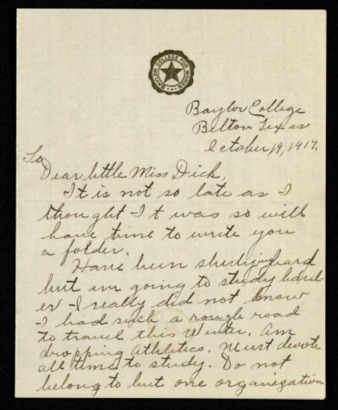 BAYLOR COLLEGE FOR WOMEN
Baylor College
Belton Texas
October 19, 1917.
To
Dear little Miss Dick,
It is not so late as I
thought it was so will
have time to write you
a folder.
Have been studying hard
but im going to study hard
er I really did not know
I had such a rough road
to travel this Winter. Am
dropping Athletics. Must devote
all time to study. Do not
belong to but one organization